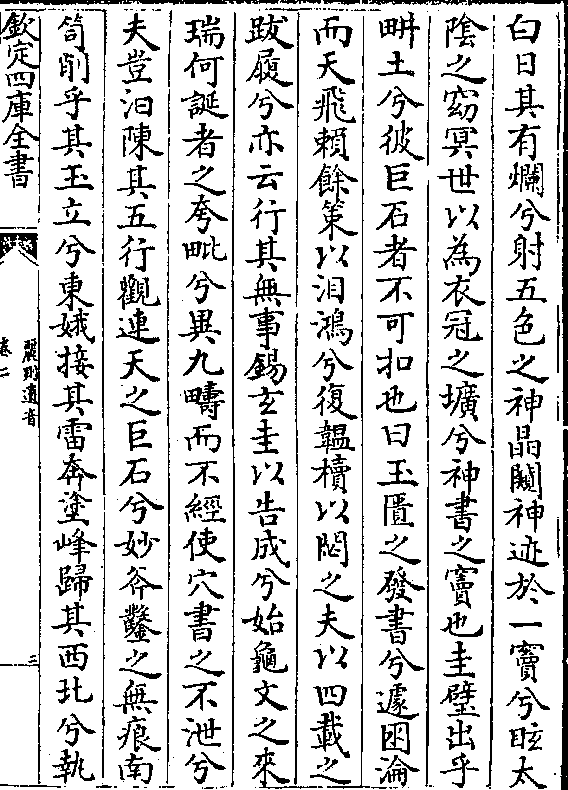 白日其有爛兮射五色之神晶閟神迹於一竇兮眩太
陰之窈冥世以為衣冠之壙兮神書之竇也圭璧出乎
畊土兮彼巨石者不可扣也曰玉匱之發書兮遽困淪
而天飛賴餘策以汩鴻兮復韞櫝以閟之夫以四載之
跋履兮亦云行其無事錫玄圭以告成兮始龜文之來
瑞何誕者之夸毗兮異九疇而不經使穴書之不泄兮
夫豈汩陳其五行觀連天之巨石兮妙斧鑿之無痕南
笥削乎其玉立兮東娥接其雷奔塗峰歸其西北兮執
欽定四庫全書
麗則遺音
卷二
三